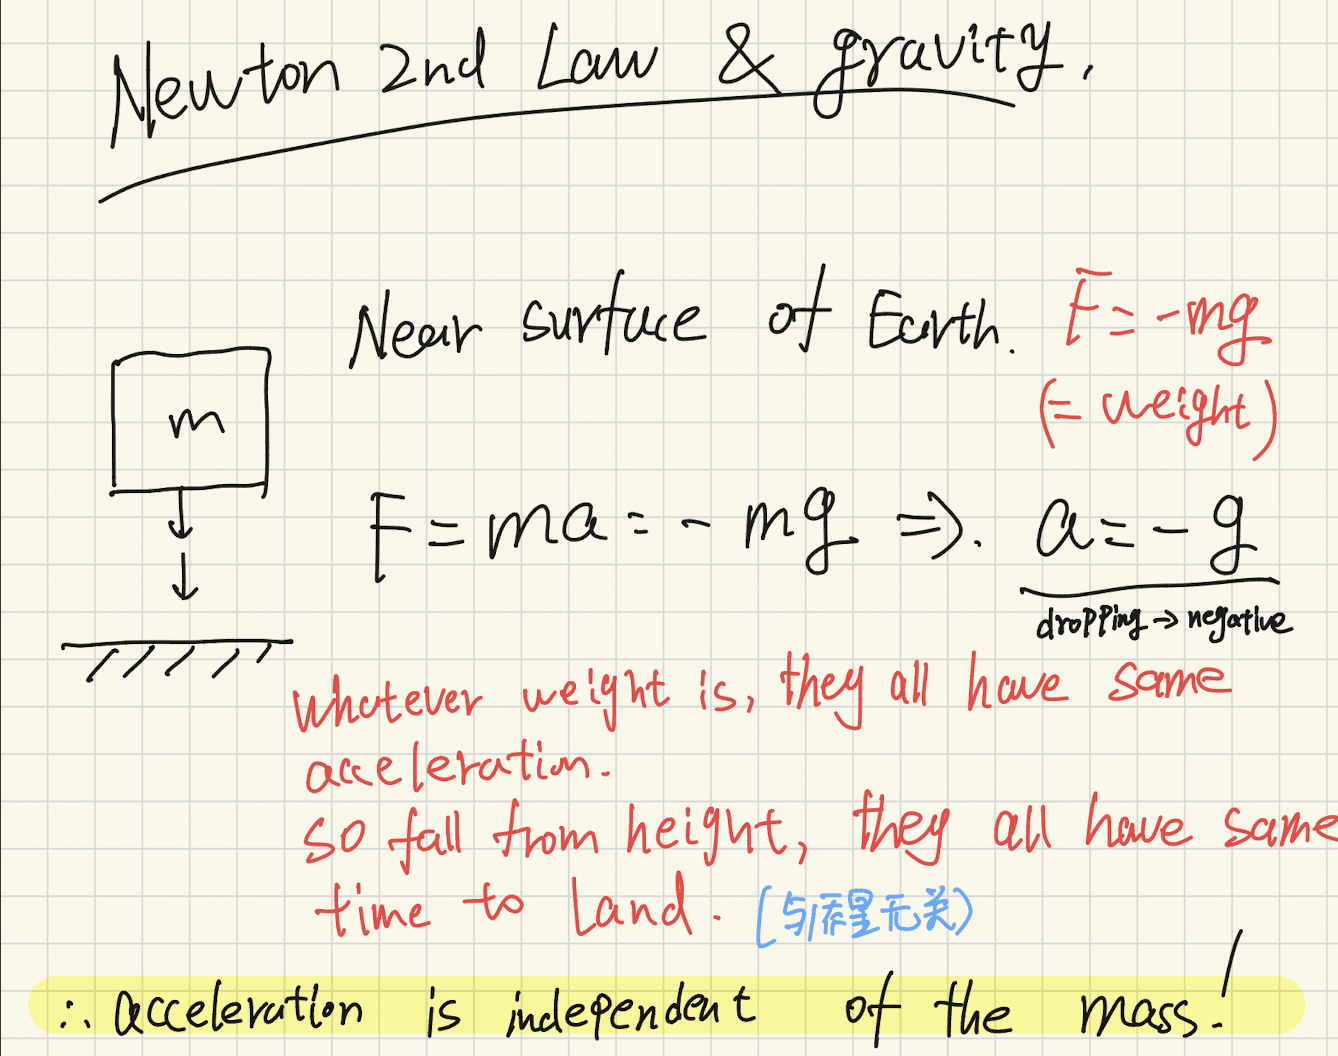 Newton 2nd Law & gravity.
Near surface of Earth. F = -mg
(= weight)
m
F = ma = - mg ⇒. a = - g
dropping → negative
whatever weight is, they all have same
acceleration.
so fall from height, they all have same
time to Land. (与体量无关)
∴ acceleration is independent of the mass!